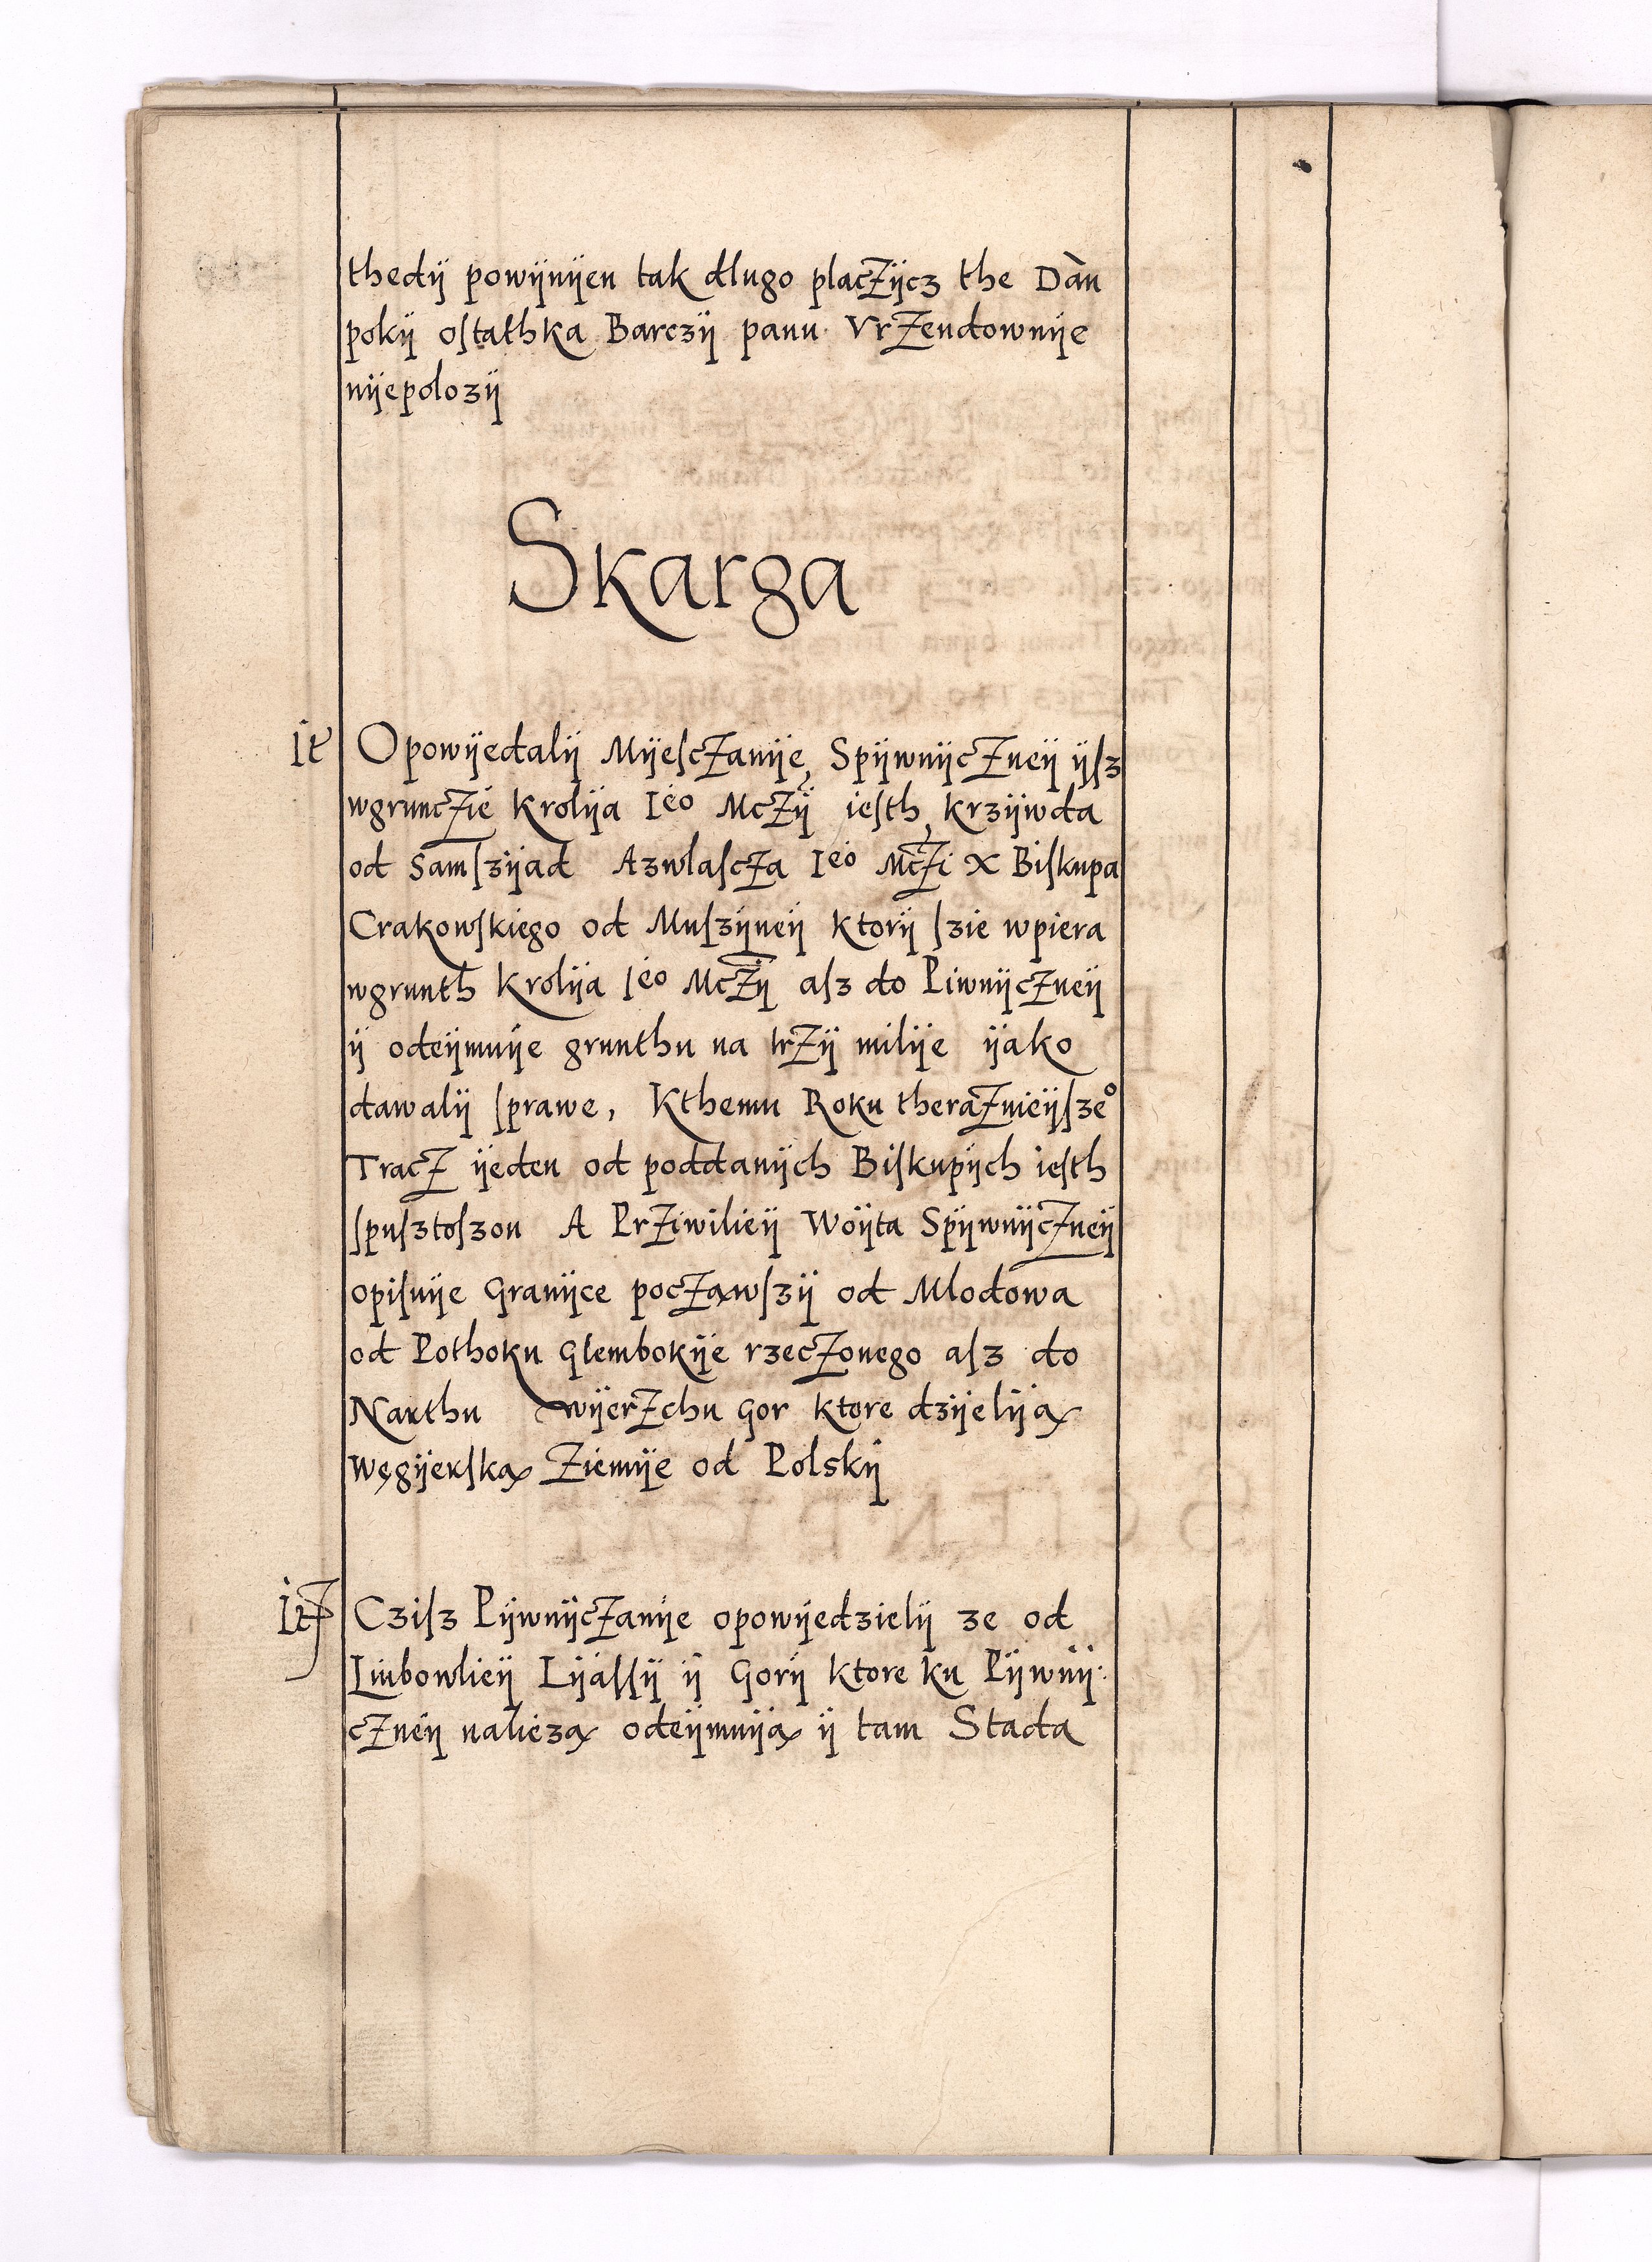 thedÿ powÿnÿen tak dlugo placZÿcz the Dàn
pokÿ oſtathka Barczÿ panu VrZendownÿe
nÿepolozÿ
Skarga
It Opowÿedalÿ MÿeſcZanÿe, SpÿwnÿcZneÿ ÿſz
wgruncZié Krolÿa Iéo McZÿ ieſth, krzÿwda
od Samſzÿad AzwlaſcZa Iéo McZi X Biſkupa
Crakowſkiego od Muſzÿneÿ ktorÿ ſzie wpiera
wgrunth Krolÿa Iéo McZÿ aſz do PiwnÿcZneÿ
ÿ odeÿmuÿe grunthu na trZÿ milÿe ÿako
dawalÿ ſprawe, Kthemu Roku theraZnieÿſzeº
TracZ ÿeden od poddanÿch Biſkupÿch ieſth
ſpuſztoſzon A PrZiwilieÿ Woÿta SpÿwnÿcZneÿ
opiſuÿe Granÿce pocZąwſzÿ od Mlodowa
od Pothoku Glembokÿe rzecZonego aſz do
Narthu wÿerZchu Gor ktore dzÿelÿą
Węgÿerſką Ziemÿe od Polskÿ
It Cziſz PÿwnÿcZanÿe opowÿedzielÿ ze od
Liubowlieÿ Lÿaſſÿ ÿ Gorÿ ktore ku Pÿwnÿ:
cZneÿ naliezą odeÿmuÿą ÿ tam Stada